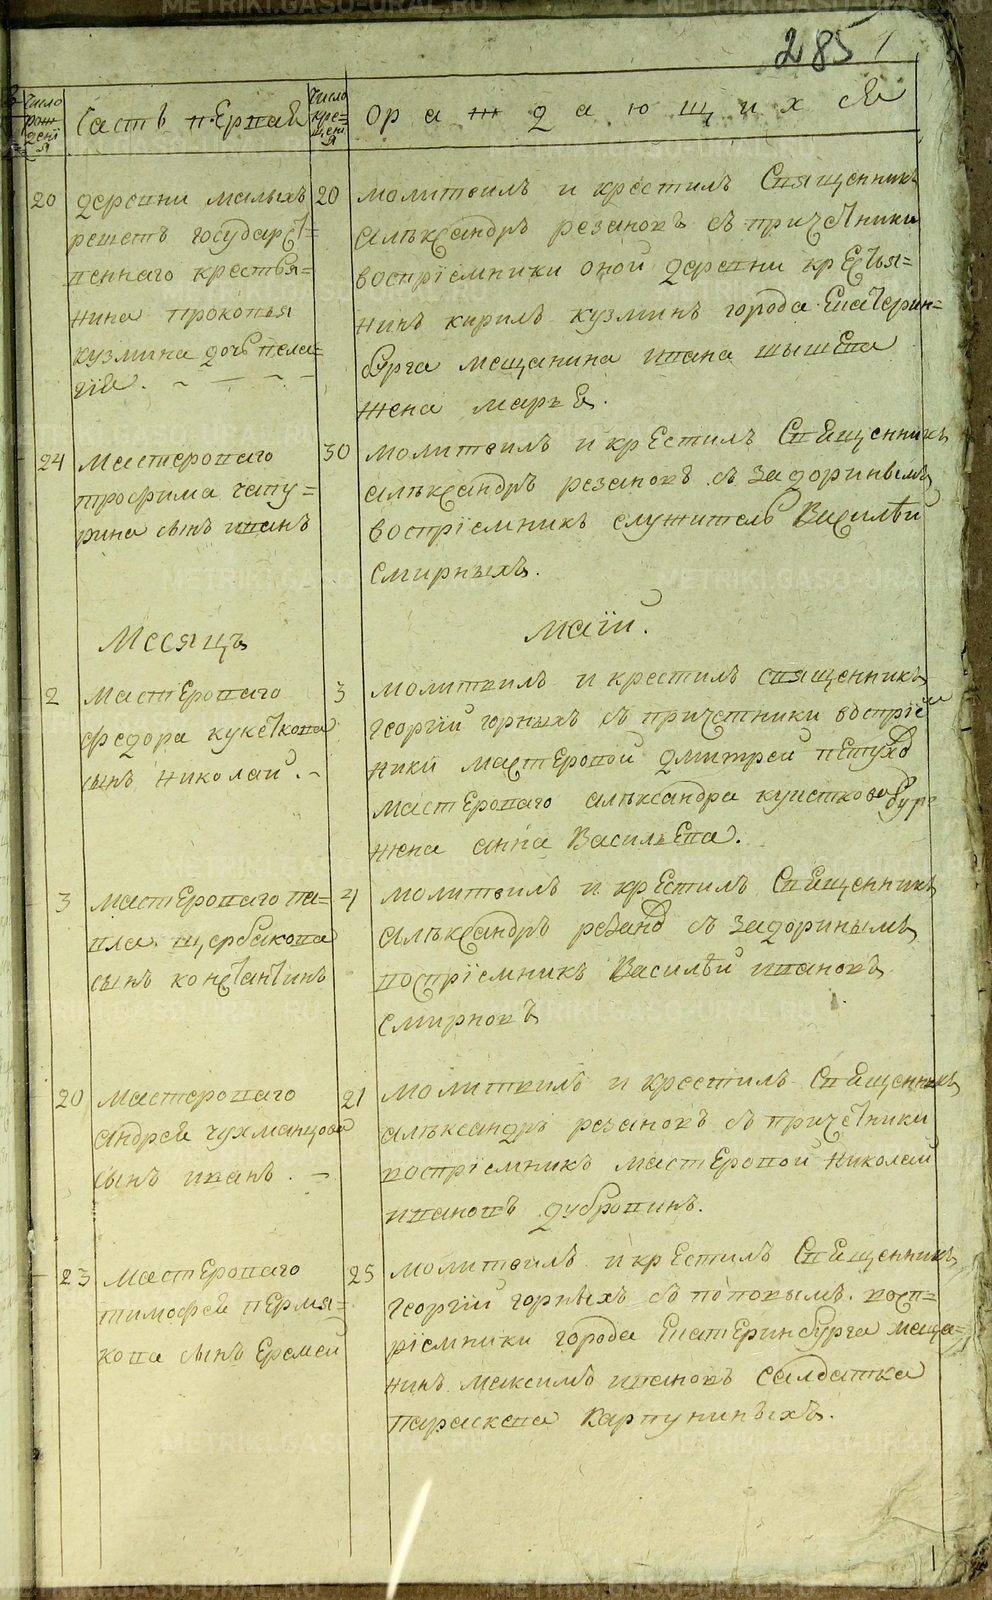 285
Число рождения
Часть первая
Число крещения
о раждающихся
20
деревни малыхъ
решетъ государст=
веннаго крестья=
нина прокопья
кузмина дочь пела=
гия.
20
молитвилъ и крестилъ Священникъ
алѣксандръ резановъ съ причетники
воспрiемники оной деревни крестья=
нинъ кирилъ кузминъ города Екатерин=
бурга мещанина ивана шышева
жена марья.
24
мастероваго
трофима чапу=
рина сынъ иванъ
30
молитвилъ и крестилъ Священникъ
алѣксандръ резановъ съ задоринымъ
воспрiемникъ служитель Василѣй
смирныхъ.
Месяцъ
маiй.
2
мастероваго
федора
сынъ николай.
3
молитвилъ и крестилъ священникъ
георгiй горныхъ съ причетники воспрiем
ники мастеровой дмитрей петухов
мастероваго алѣксандра
жена анна Васильева.
3
мастероваго па=
вла щербакова
сынъ константинъ
4
молитвилъ и крестилъ Священникъ
алѣксандръ резанов съ задоринымъ
воспрiемникъ Василѣй ивановъ
смирновъ
20
мастероваго
андрея чухманцова
сынъ иванъ.
21
молитвилъ и крестилъ Священникъ
алѣксандръ резановъ съ причетники
воспрiемникъ мастеровой николай
ивановъ дубровинъ.
23
мастероваго
тимофея пермя=
кова сынъ Еремей
25
молитвилъ и крестилъ Священникъ
георгiй горныхъ съ поповымъ. восп=
рiемники города Екатеринбурга меща=
нинъ максимъ ивановъ салдатка
параскева Карпунин ыхъ.
METRIKI.GASU-URAL.RU